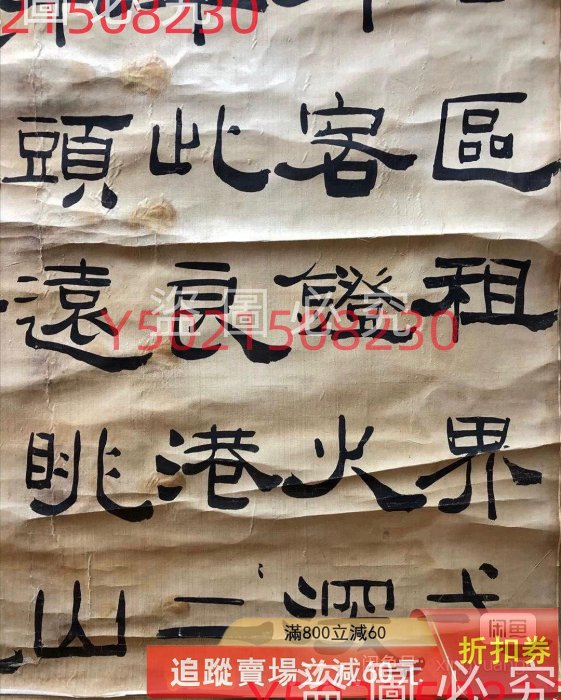 區租界
客鐙火
此良港
頭遠眺山
盜圖必究
Y5021508230
滿800立減60
追蹤賣場立減60元
折扣券
闲鱼
盜圖必究